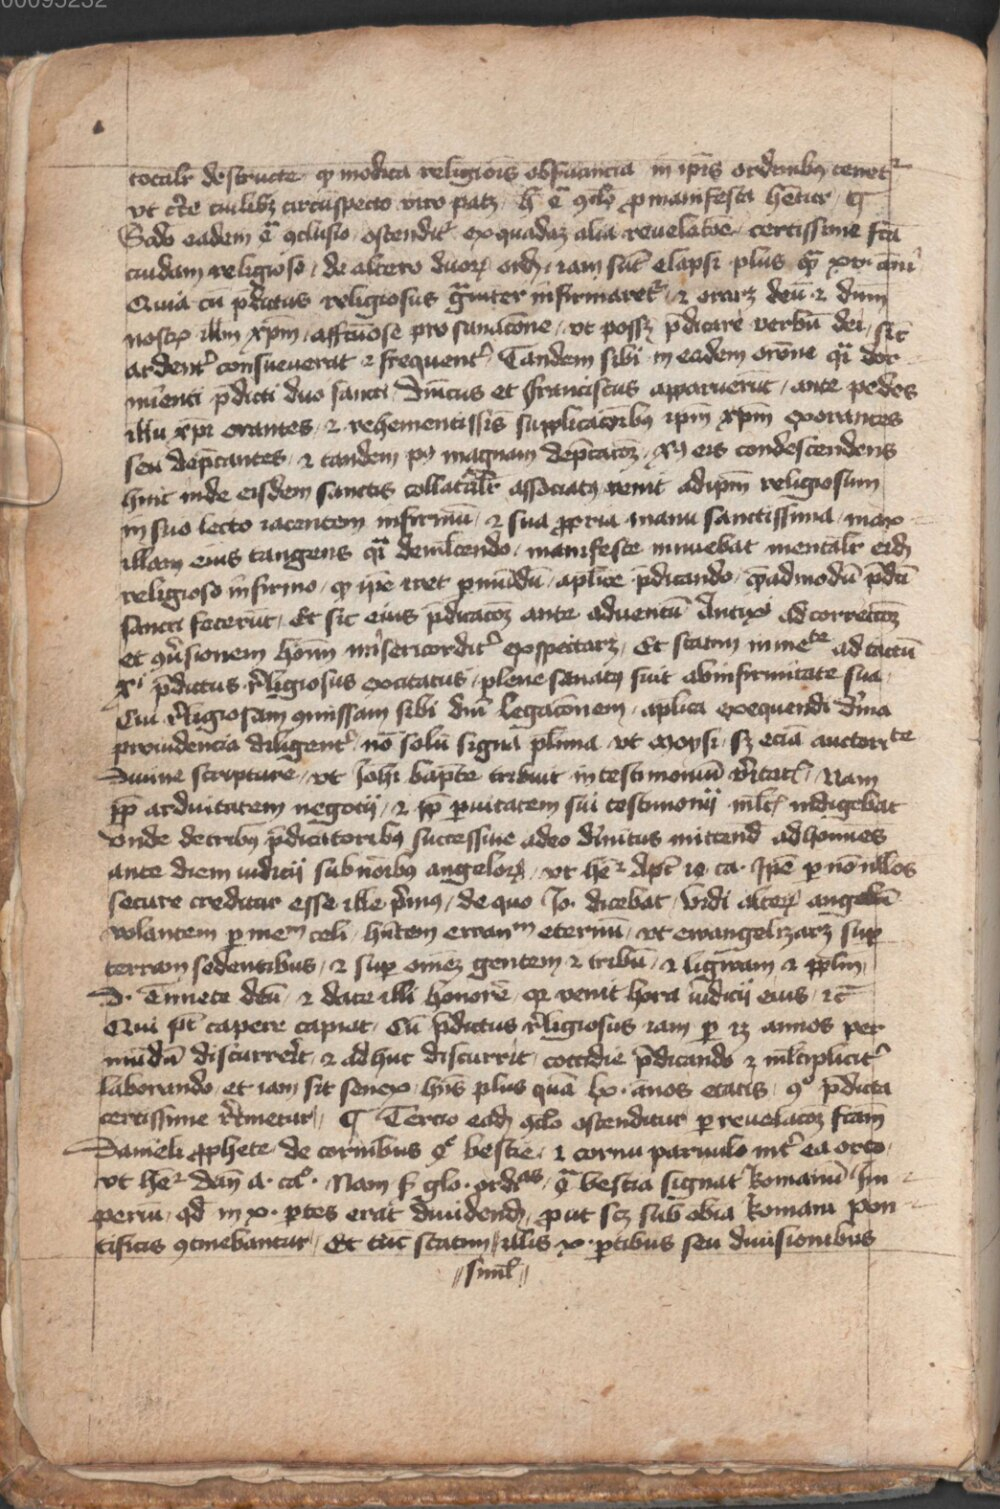 00095232
totalr̄ destructe qꝫ modica religiois obſuancia in ipīs ordinibꝰ tenet᷑
vt c̄te cuilibꝫ circūspecto viro patꝫ h̄ ē ꝯclo ꝓ manifesta hētur ¶
Scd̄o eadem ē ꝯclusio ostendit᷑ ex quadaꝫ alia reuelatōe certissime fc̄a
cuidam religioso de altero duoꝝ ord̄ iam sūt elapsi plus qꝫ xv āni
Quia cū p̄dictus religiosus gͣuiter infirmaret᷑ ⁊ oraꝛꝫ deū ⁊ dnm
nostꝝ ih̄m xp̄m affc̄uose pro sanacōne vt possꝫ p̄dicare verbū dei sic̄
ardent᷑ consueuerat ⁊ frequent᷑ Tandem sibi in eadem orōne qͣi dor
mienti p̄dicti duo sancti Dn̄icus et franciscus apparuerūt ante pedes
ih̄u xp̄i orantes ⁊ vehementissīs supplicacōibꝰ ipm xp̄m exorantes
seu dep̄cantes ⁊ tandem pꝰ magnam dep̄cacōꝫ xꝰ eis condescendens
hinc inde eisdem sanctis collatalr̄ associatꝰ venit ad ipm̄ religiosum
in suo lecto iacentem infirmū ⁊ sua ꝓpria manu sanctissima max
illam eius tangens qͣi demlcendo manifeste innuebat mentalr̄ eidꝫ
religioso infirmo qꝫ ip̄e iret ꝑ mūdū aplice p̄dicando qͣadmodū p̄dc̄i
sancti fecerūt Et sic eius p̄dicacōꝫ ante aduentū Antixp̄i ad correcc̄oꝫ
et ꝯūsionem hoīm mīsericordit᷑ expectaꝛꝫ Et statim in meᵗᵉ ad tactū
xⁱ p̄dictus r̄ligiosus excitatus plene sanatꝰ fuit ab infirmitate sua
Cui r̄ligiosam ꝯmissam sibi dn̄i legacōnem aplica exequendi d̄ina
prouidencia diligent᷑ nō solū signa plima vt Moysi sꝫ eciā auctoriᵗᵉ
Diuine scripture vt Joh̄i bapte tribuit in testimoniū v̄itatꝭ Nam
ꝓp̄ arduitatem negotij ⁊ ꝓp̄ ꝑuitatem sui testimonij ml̄tꝭ indigebat
Vnde de tribꝰ p̄dicatoribꝰ successiue a deo diuītus mittend̄ ad homines
ante diem iudicij sub noībꝰ angeloꝝ vt hē᷑ Apc̄ 14 ca Ip̄e ꝑ nōnullos
secure creditur esse ille p̄imꝰ de quo Jo dicebat Vidi alteꝝ angelū
volantem ꝑ meᵐ celi hn̄tem ewanᵐ eternū vt ewangelizaꝛꝫ suꝑ
terram sedentibus ⁊ suꝑ om̄eꝫ gentem ⁊ tribū ⁊ ligwam ⁊ pplm
D. Timete deū ⁊ date illi honorē qꝛ venit hora iudicij eius ⁊c̄
Qui pt̄ capere capiat Cū p̄dictus r̄ligiosus iam ꝑ 13 annos per
mūdū discurrer̄it ⁊ adhuc discurrit cottidie p̄dicando ⁊ ml̄tiplicit᷑
laborando et iam sit senex hn̄s plus quā lx ānos etatis ꝯᵒ p̄dicta
certissime r̄tinetur ¶ Tercio eadꝫ ꝯclo ostenditur ꝑ reuelacōꝫ fc̄am
Danieli ꝓphete de cornibus qᵉ bestie ⁊ cornu paruulo int᷑ ea orto
vt hē᷑ Dan̄ a. caᵒ. Nam ẜ glo ordīᵃˢ qͣ bestia signat Romanū Im
perium qd̄ in x ꝑtes erat diuidendū ꝓut scꝫ sub obia Romani Pon
tificis ꝯtinebantur Et tūc statim illis x ꝑtibus seu diuisionibus
siml̄